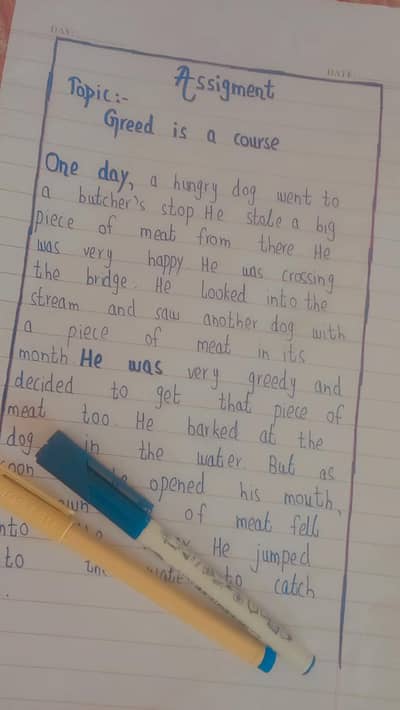 DAY:
DATE
Assigment
Topic:-
Greed is a course
One day, a hungry dog went to
a butcher's stop He stole a big
piece of meat from there He
was very happy He was crossing
the bridge. He looked into the
stream and saw another dog with
a piece of meat in its
month. He was very greedy and
decided to get that piece of
meat too. He barked at the
dog in the water. But as
soon he opened his mouth,
own of meat fell
into He jumped
to the water to catch